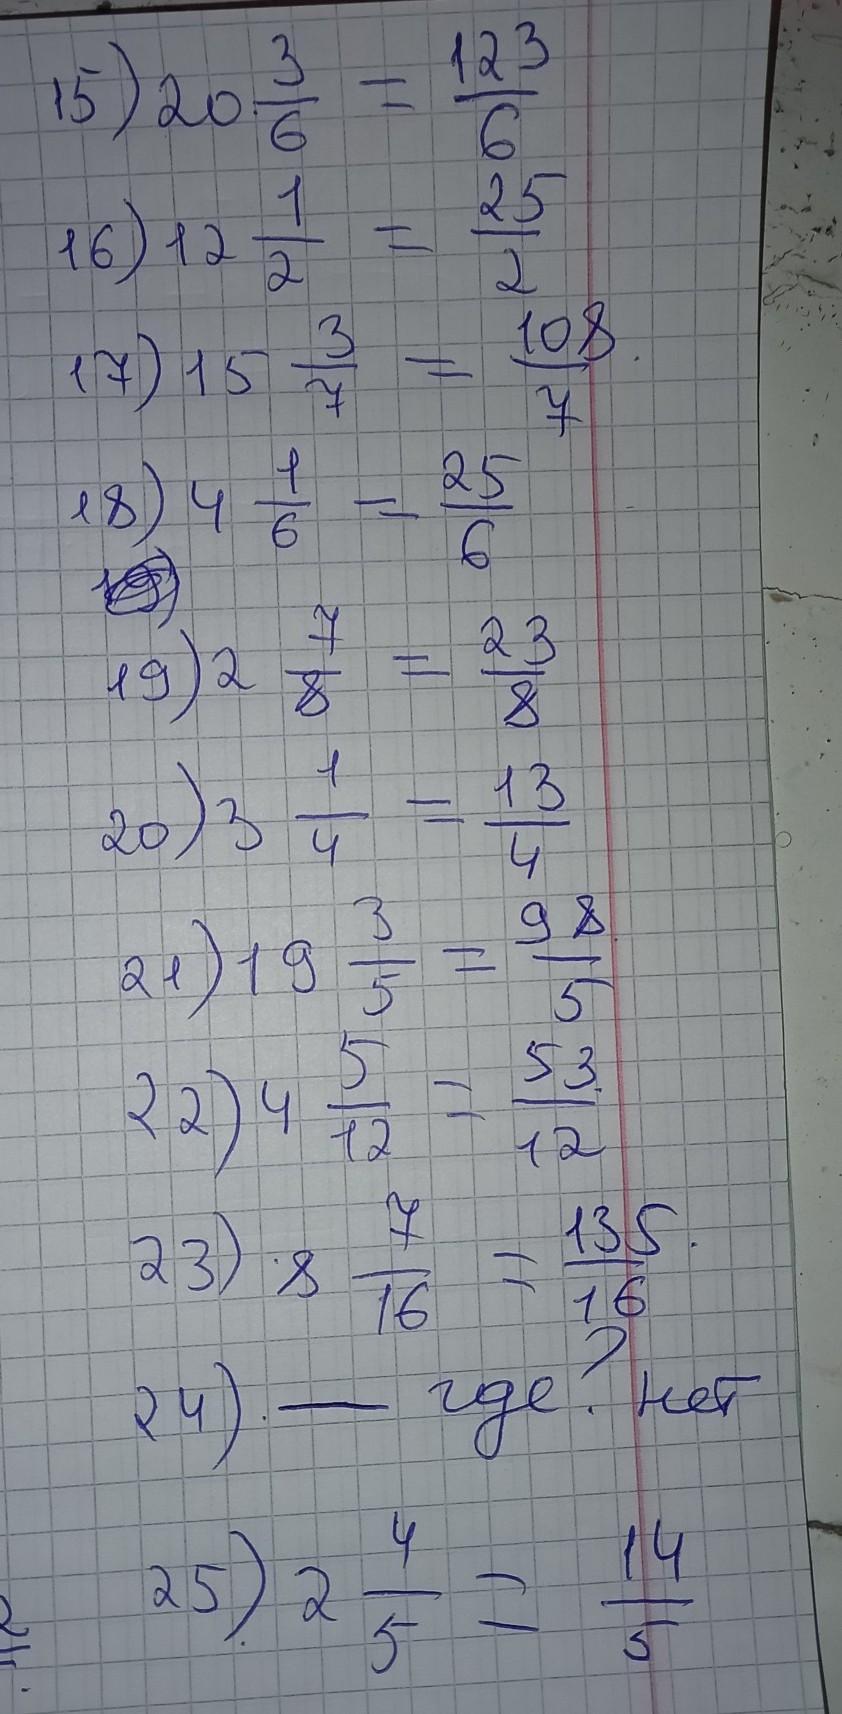 15) 20 3/6 = 123/6
16) 12 1/2 = 25/2
17) 15 3/7 = 108/7
18) 4 1/6 = 25/6
19) 2 7/8 = 23/8
20) 3 1/4 = 13/4
21) 19 3/5 = 98/5
22) 4 5/12 = 53/12
23) 8 7/16 = 135/16
24) — где? нет
25) 2 4/5 = 14/5